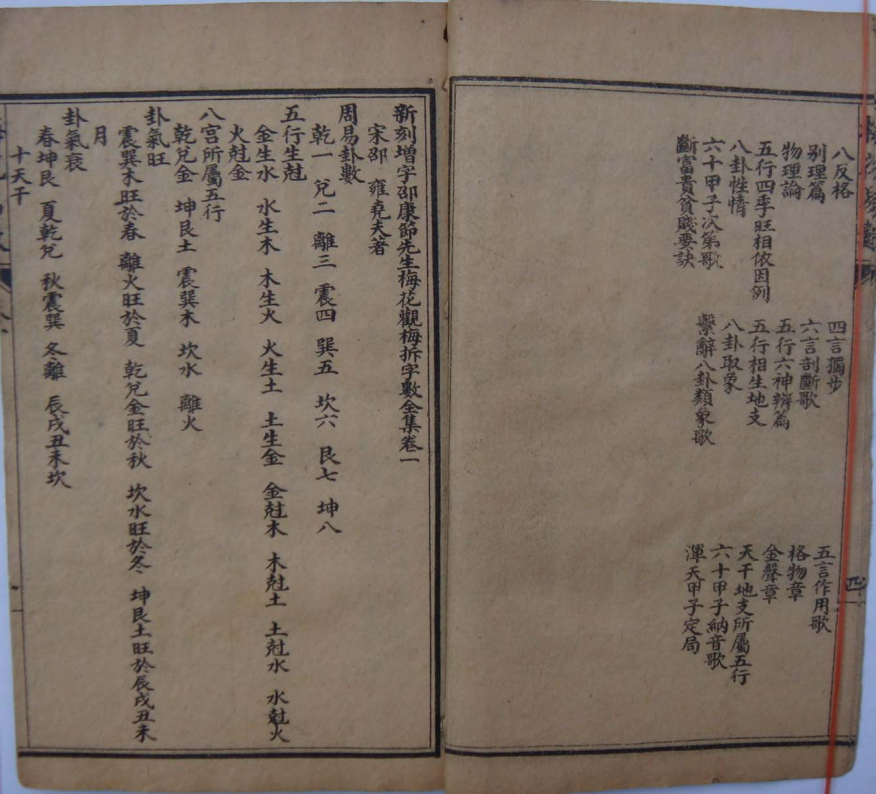 八反格
四言獨步
五言作用歌
別理篇
六言剖斷歌
格物章
物理論
五行六神辨篇
金聲章
五行四季旺相依因例
五行相生地支
天干地支所屬五行
八卦性情
八卦取象
六十甲子納音歌
六十甲子次第歌
繫辭八卦類象歌
渾天甲子定局
斷富貴貧賤要訣
四
新刻增字邵康節先生梅花觀梅拆字數全集卷一
宋邵 雍堯夫著
周易卦數
乾一 兌二 離三 震四 巽五 坎六 艮七 坤八
五行生尅
金生水 水生木 木生火 火生土 土生金 金尅木 木尅土 土尅水 水尅火
火尅金
八宮所屬五行
乾兌金 坤艮土 震巽木 坎水 離火
卦氣旺
震巽木旺於春 離火旺於夏 乾兌金旺於秋 坎水旺於冬 坤艮土旺於辰戌丑未
月
卦氣衰
春坤艮 夏乾兌 秋震巽 冬離 辰戌丑未坎
十天干